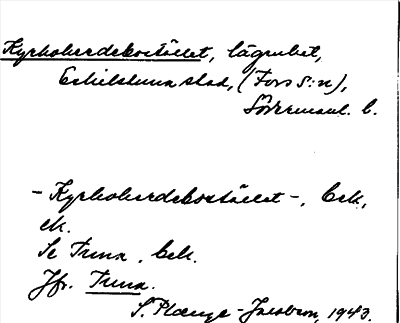 Kyrkoherdebostället, lägenhet,
Eskilstuna stad, (Fors s:n),
Södermanl. l.
- Kyrkoherdebostället -, bek,
ek.
Se Tuna, bek.
Jfr. Tuna.
S. Plænge-Jacobson, 1943.